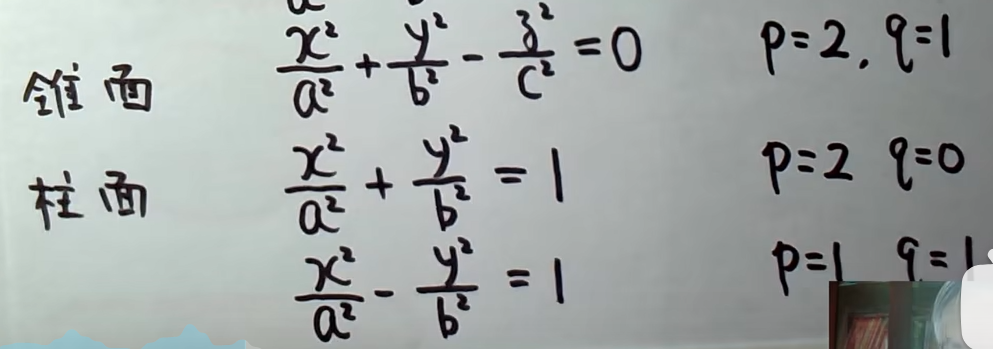 锥面 x²/a² + y²/b² - z²/c² = 0 p=2, q=1
柱面 x²/a² + y²/b² = 1 p=2 q=0
x²/a² - y²/b² = 1 p=1 q=1